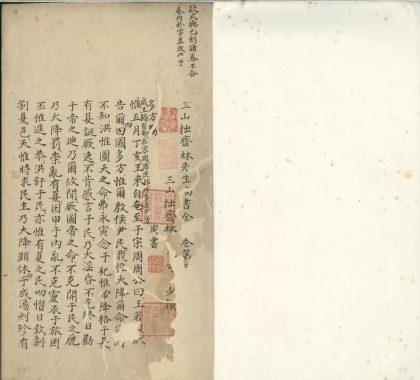 欵式與已刻諸卷不合
卷內於字並改于
三山拙齋林先生尚書全 卷第
三山拙齋林 之 少穎
多方 周書
成王歸自奄在宗周誥庶邦作多方
惟五月丁亥王來自奄至于宗周周公曰王若
告爾四國多方惟爾殷侯尹民我惟大降爾命
不知洪惟圖天之命弗永寅念于祀惟帝降格于
有夏誕厥逸不肯慼言于民乃大淫昏不克終日勸
于帝之迪乃爾攸聞厥圖帝之命不克開于民之麗
乃大降罰崇亂有夏因甲于內亂不克靈承于旅罔
丕惟進之恭洪舒于民亦惟有夏之民叨懫日欽劓
割夏邑天惟時求民主乃大降顯休于成湯刑殄有